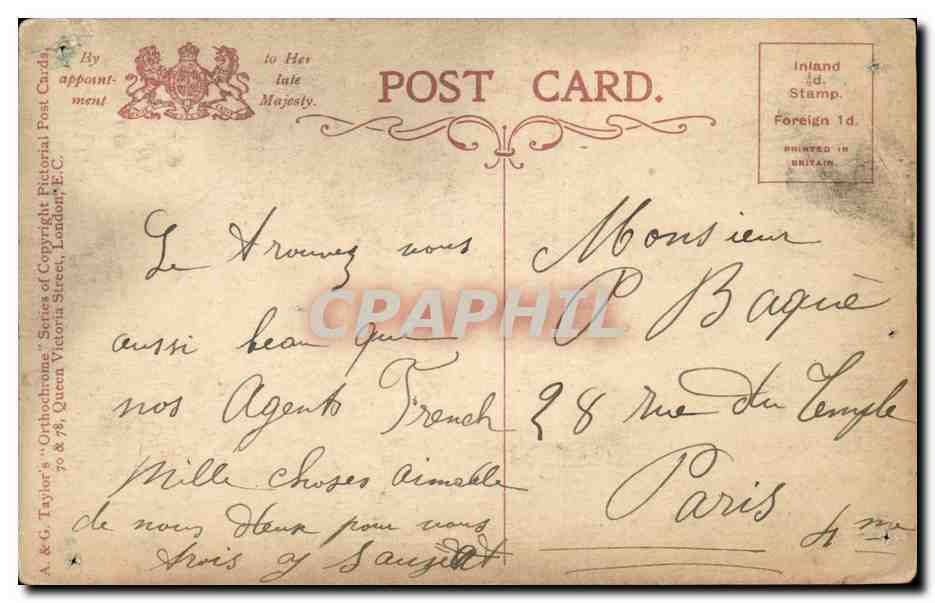 By
appoint-
ment
to Her
late
Majesty.
POST CARD.
Inland
½d.
Stamp.
Foreign 1d.
PRINTED IN
BRITAIN.
A. & G. Taylor's "Orthochrome" Series of Copyright Pictorial Post Cards,
70 & 78, Queen Victoria Street, London, E.C.
Le trouvez vous
aussi beau que
nos Agents French
Mille choses aimable
de nous deux pour vous
trois
Monsieur
P Baqué
28 rue du Temple
Paris
4me
CPARHIL